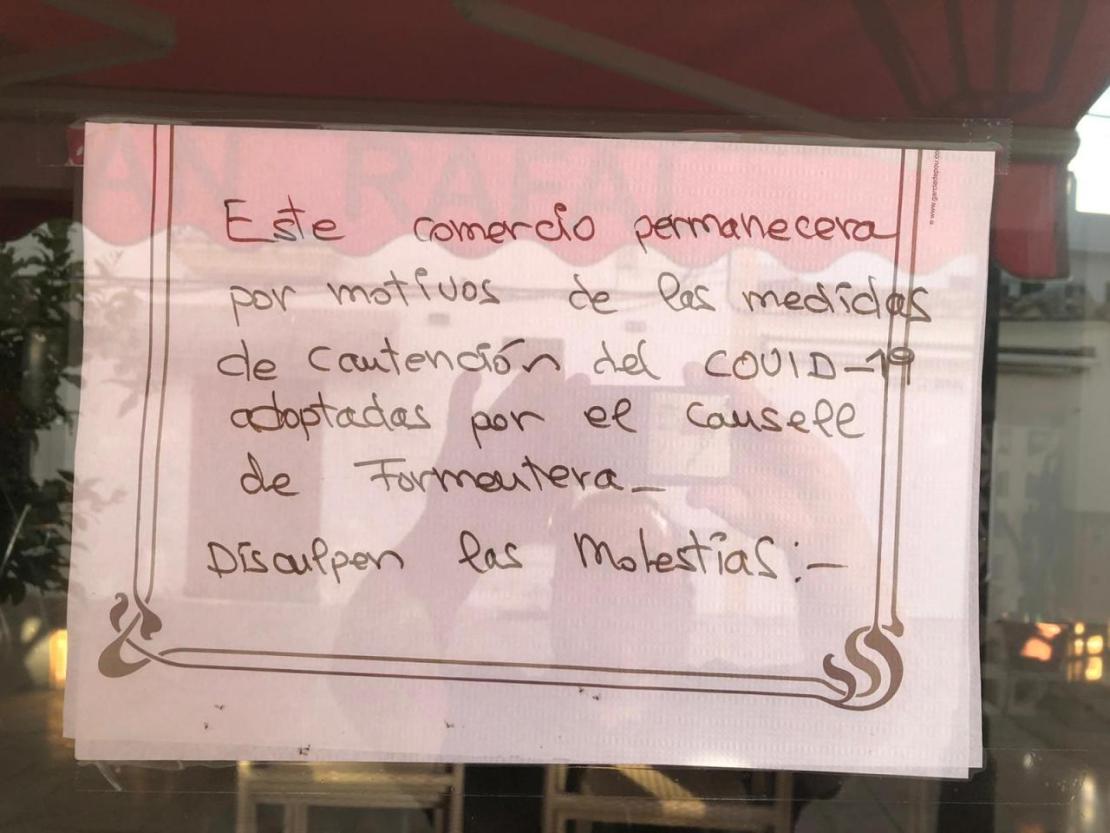 Este comercio permanecera
por motivos de las medidas
de contención del COVID-19
adoptadas por el Consell
de Formentera_
Disculpen las Molestias:-
AN RAFA